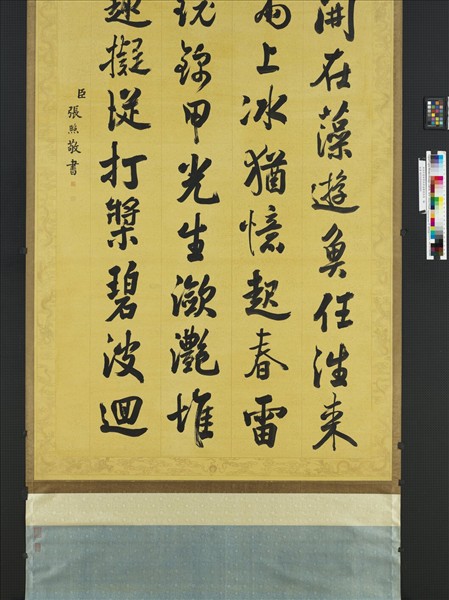 在藻遊魚任往来
上冰猶憶起春雷
錦甲光生瀲灩堆
趣擬從打槳碧波迴
臣張照敬書